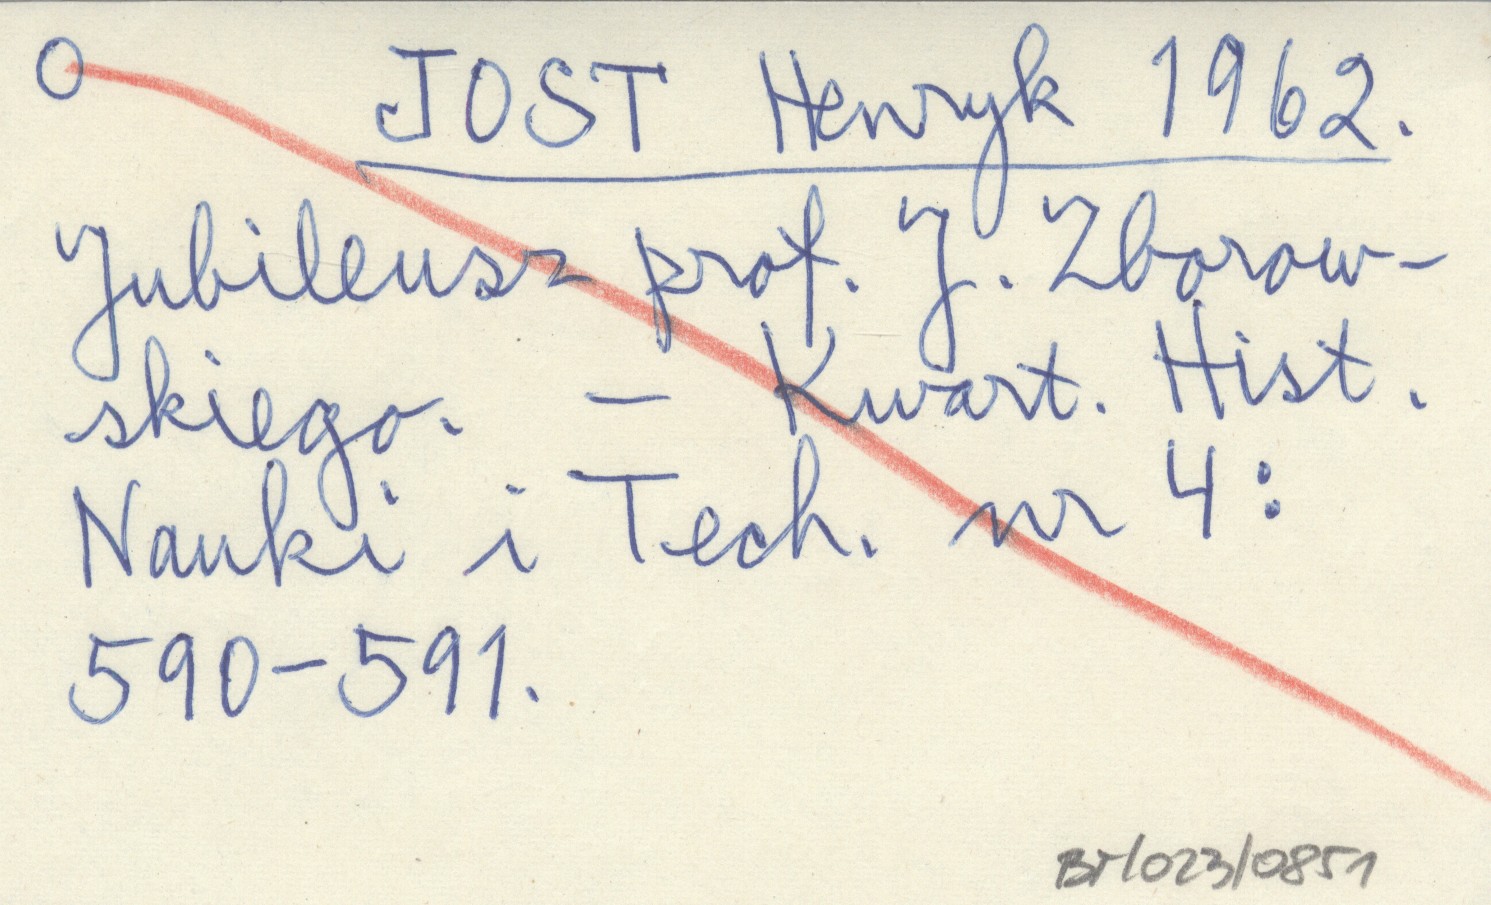 O JOST Henryk 1962.
Jubileusz prof. J. Zborow-
skiego. – Kwart. Hist.
Nauki i Tech. nr 4:
590-591.
BT/023/0851